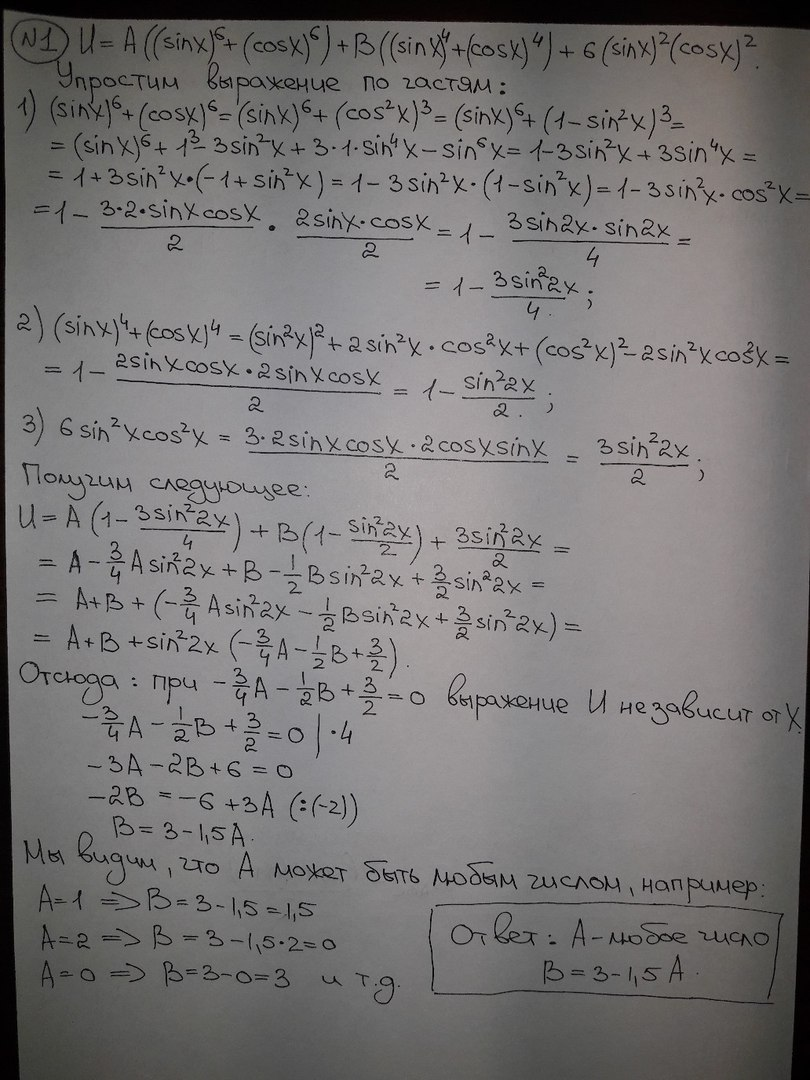 №1 U = A((sinx)⁶+(cosx)⁶)+B((sinx)⁴+(cosx)⁴)+6(sinx)²(cosx)².
Упростим выражение по частям:
1) (sinx)⁶+(cosx)⁶=(sinx)⁶+(cos²x)³=(sinx)⁶+(1-sin²x)³=
=(sinx)⁶+1³-3sin²x+3·1·sin⁴x-sin⁶x=1-3sin²x+3sin⁴x=
=1+3sin²x·(-1+sin²x)=1-3sin²x·(1-sin²x)=1-3sin²x·cos²x=
=1-(3·2·sinxcosx)/2 · (2sinx·cosx)/2 = 1-(3sin2x·sin2x)/4 =
=1-(3sin²2x)/4.;
2) (sinx)⁴+(cosx)⁴=(sin²x)²+2sin²x·cos²x+(cos²x)²-2sin²xcos²x=
=1-(2sinxcosx·2sinxcosx)/2 = 1-(sin²2x)/2.;
3) 6sin²xcos²x = (3·2sinxcosx·2cosxsinx)/2 = (3sin²2x)/2;
Получим следующее:
U=A(1-(3sin²2x)/4)+B(1-(sin²2x)/2)+(3sin²2x)/2=
=A-3/4Asin²2x+B-1/2Bsin²2x+3/2sin²2x=
=A+B+(-3/4Asin²2x-1/2Bsin²2x+3/2sin²2x)=
=A+B+sin²2x(-3/4A-1/2B+3/2).
Отсюда: при -3/4A-1/2B+3/2=0 выражение U не зависит от X.
-3/4A-1/2B+3/2=0 |·4
-3A-2B+6=0
-2B=-6+3A (:(-2))
B=3-1,5A.
Мы видим, что A может быть любым числом, например:
A=1 => B=3-1,5=1,5
A=2 => B=3-1,5·2=0
A=0 => B=3-0=3 и т.д.
Ответ: A-любое число
B=3-1,5A.